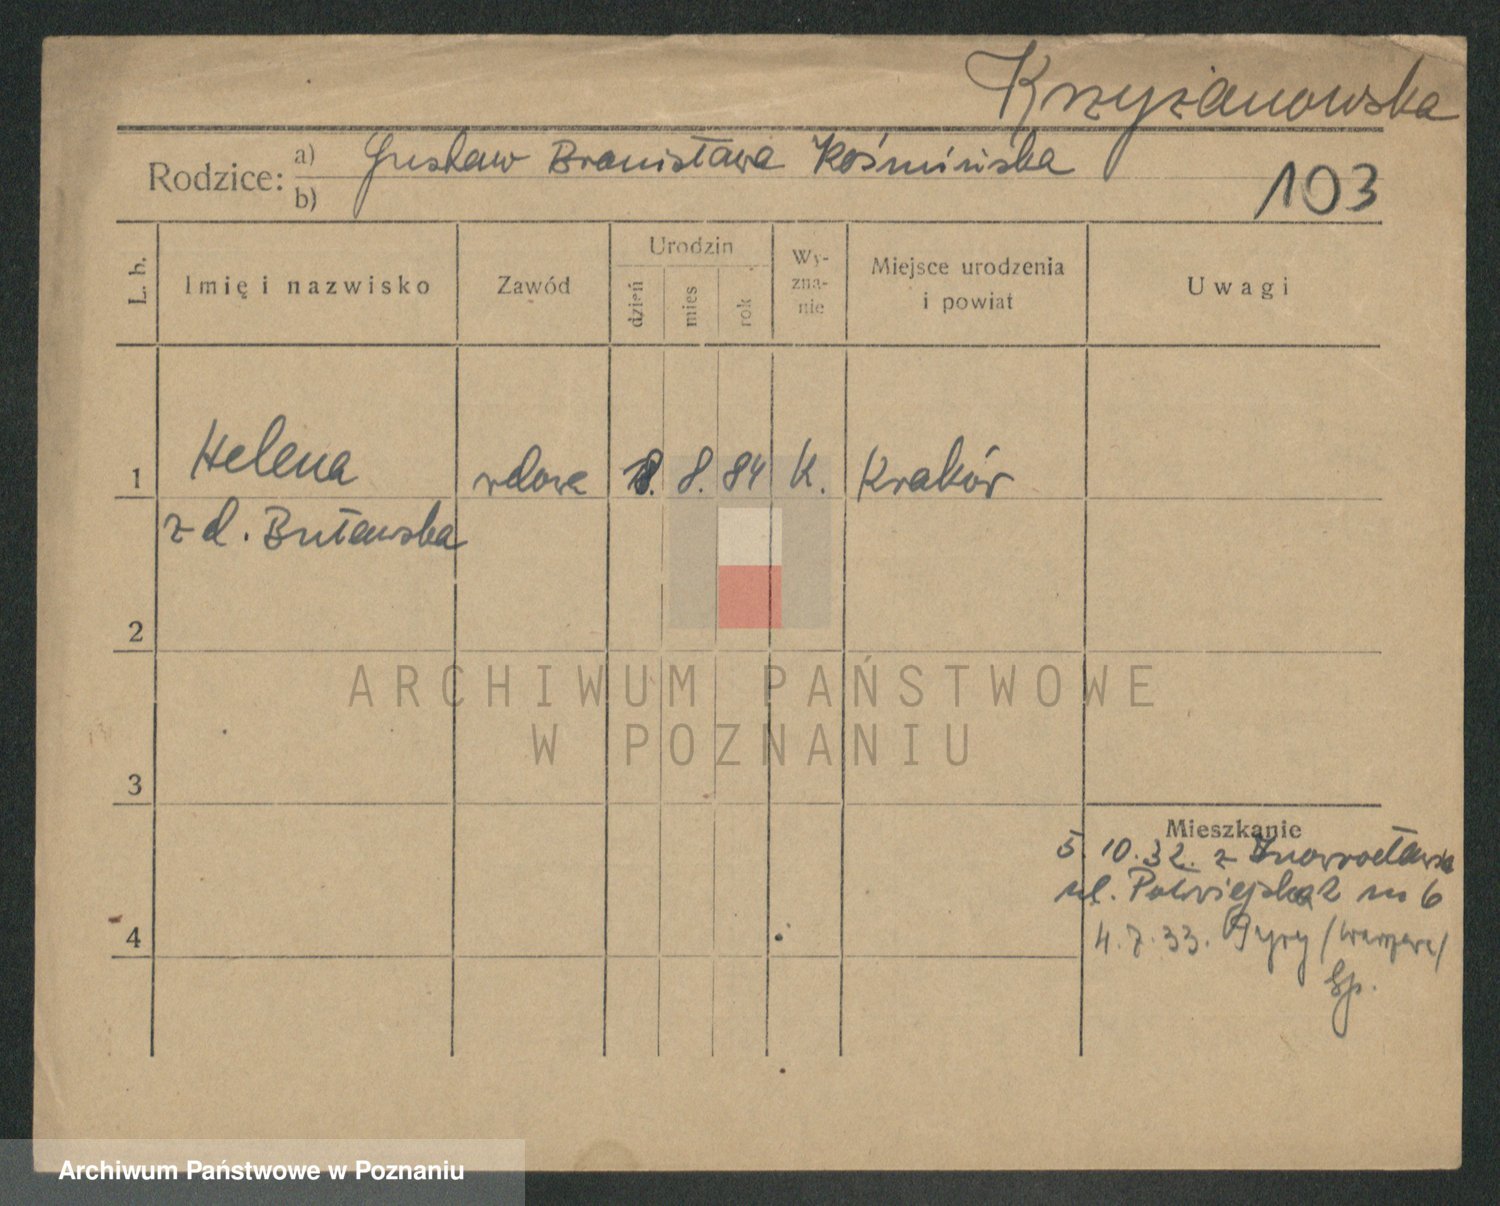 Krzyżanowska
Rodzice: a) Gustaw Bronisława Kośmińska
b)
103
L. b.
Imię i nazwisko
Zawód
Urodzin
dzień
mies
rok
Wy-
zna-
nie
Miejsce urodzenia
i powiat
Uwagi
1 Helena wdowa 18. 8. 84 K. Kraków
z d. Butawska
2
3
4
Mieszkanie
5. 10. 32. z Inowrocławia
ul. Półwiejska 2 m 6
4. 7. 33. Pyry /Warszawa/
ARCHIWUM PAŃSTWOWE
W POZNANIU
Archiwum Państwowe w Poznaniu